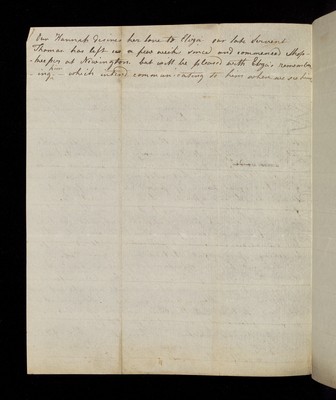 Our Hannah desires her love to Eliza our late Servant
Thomas has left us a few week since and commenced Shop-
-keeper at Newington but will be pleased with Eliza's remember
-ing him - which intend communicating to him when we see him